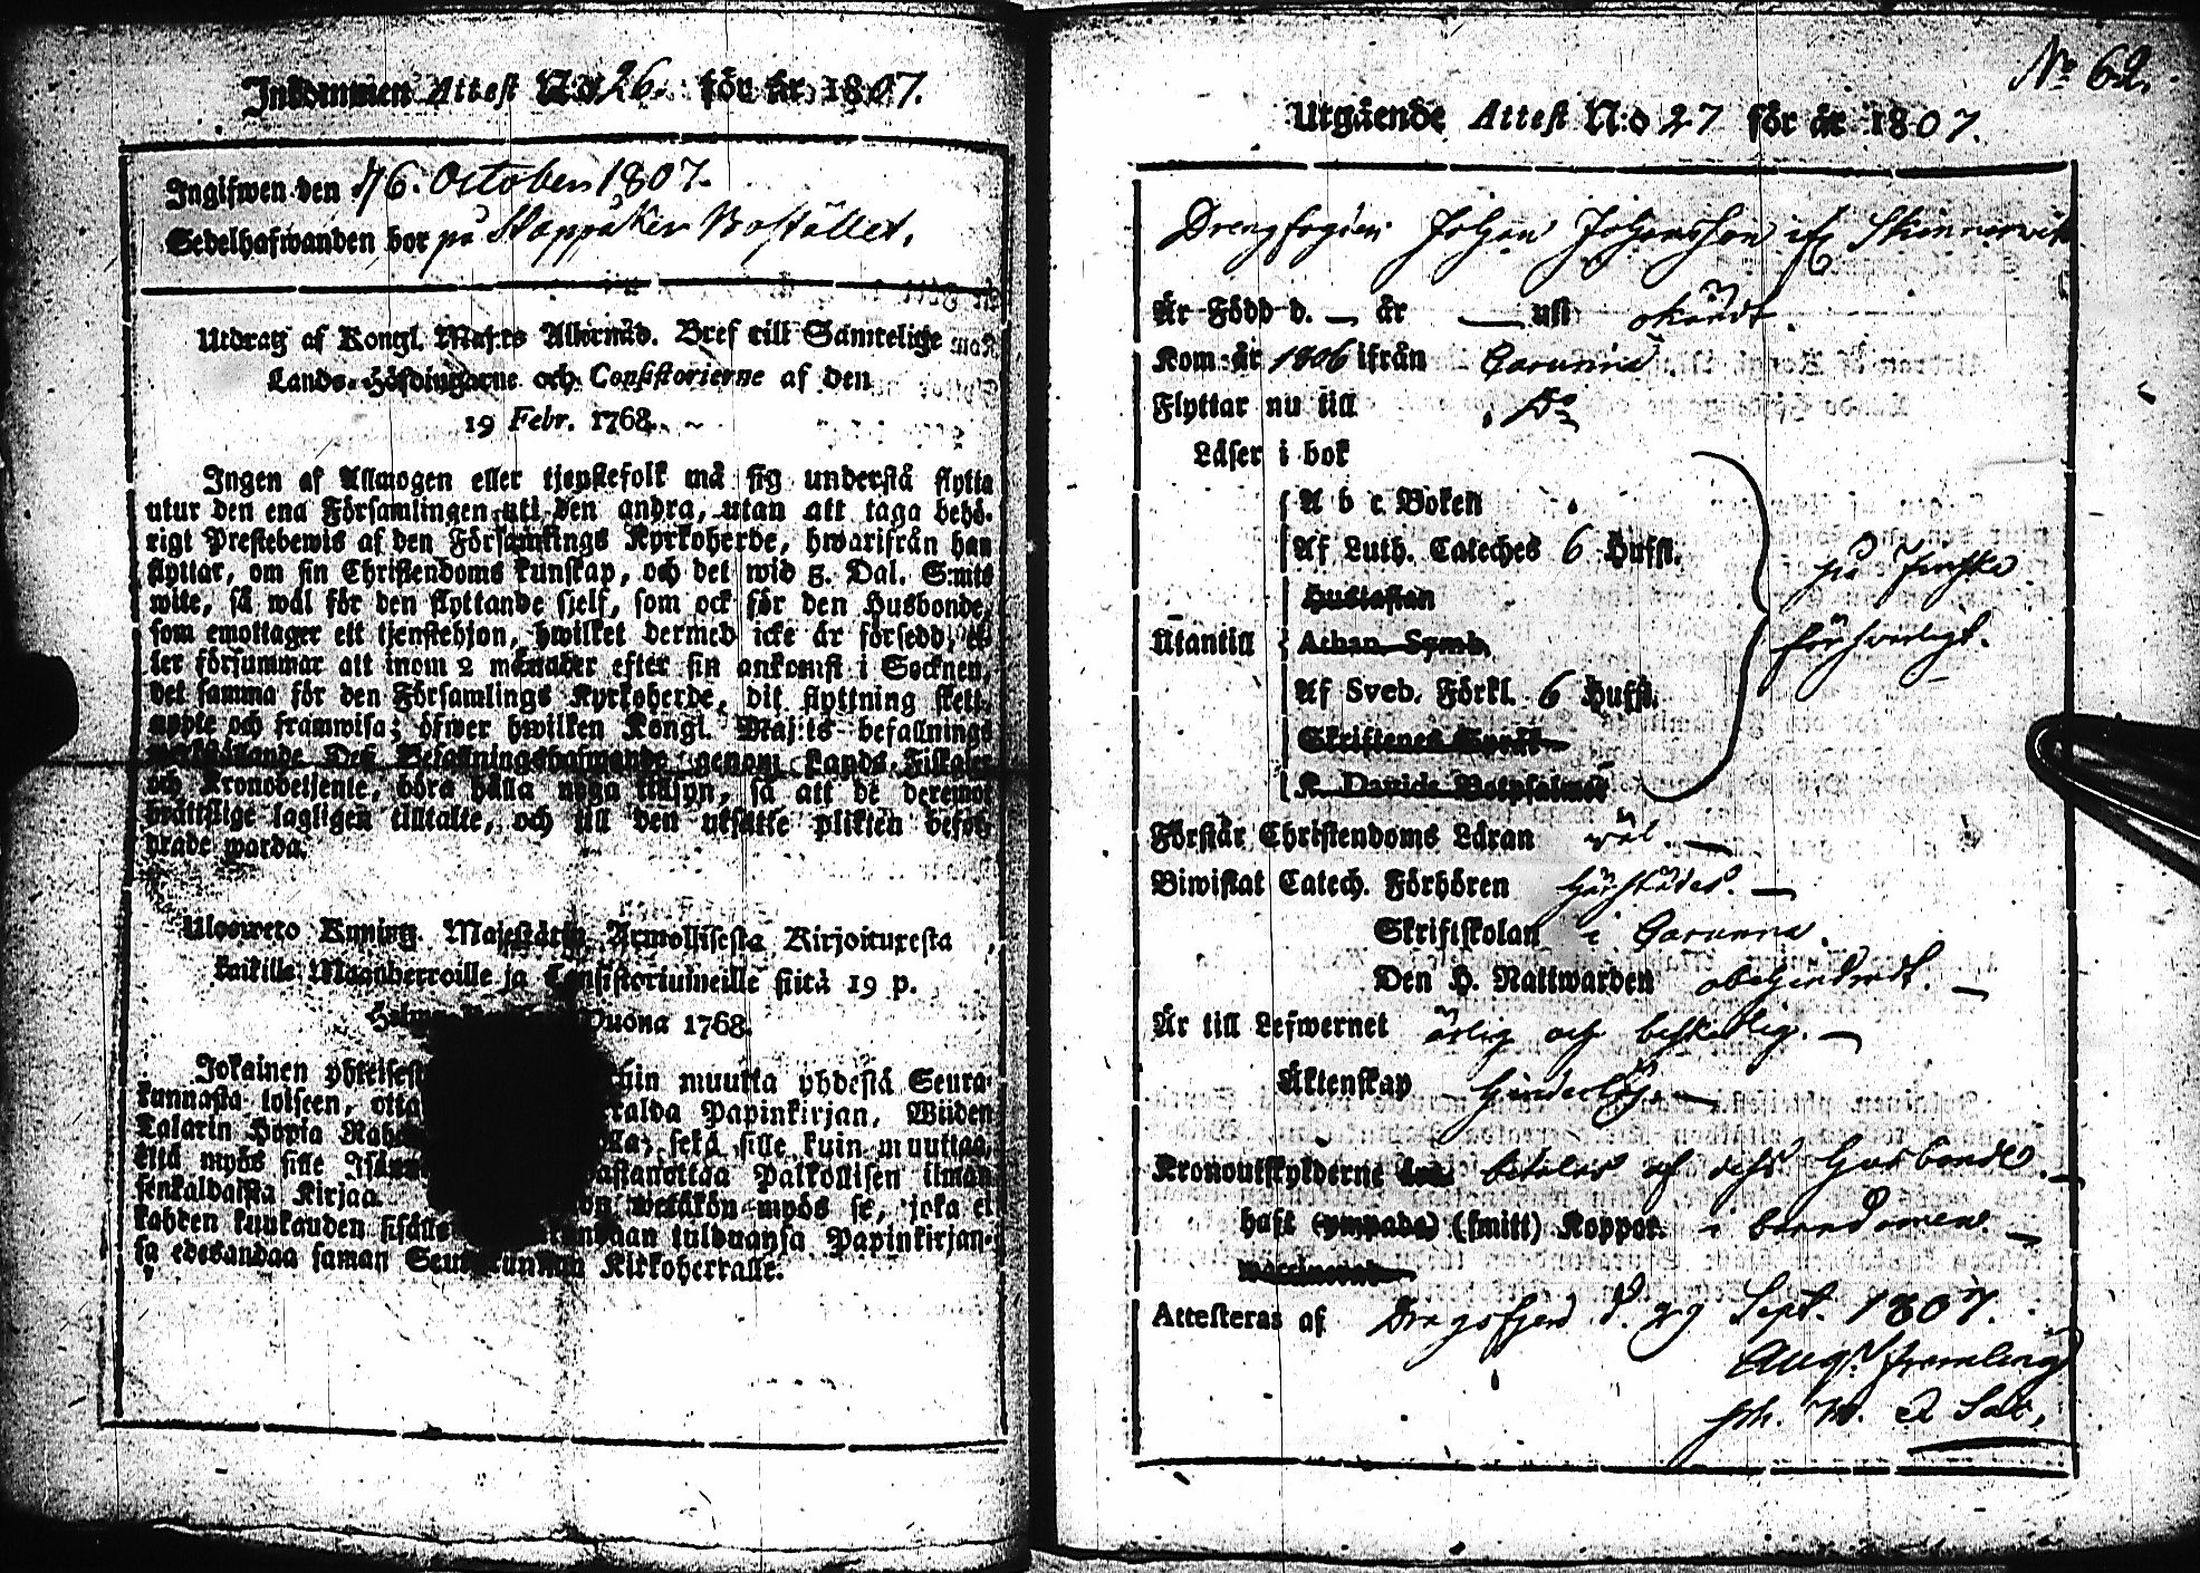 Inkommen Attest N:o 26. för år 1807.
Ingifwen den 16. October 1807.
Sedelhafwanden bor på Stappåker Boställed.
Utdrag af Kongl. Maj:ts Allernåd. Bref till Samtelige
Lands-Höfdingarne och Consistorierne af den
19 Febr. 1768.
Ingen af Allmogen eller tjenstefolk må sig understå flytta
utur den ena Församlingen uti den andra, utan att taga behö-
rigt Prestebewis af den Församlings Kyrkoherde, hwarifrån han
flyttar, om sin Christendoms kunskap, och det wid 5. Dal. S:mts
wite, så wäl för den flyttande sjelf, som ock för den Husbonde,
som emottager ett tjenstehjon, hwilket dermed icke är försedd, el-
ler försummar att inom 2 månader efter sin ankomst i Socknen,
det samma för den Församlings Kyrkoherde, dit flyttning skett,
uppte och framwisa; öfwer hwilken Kongl. Maj:ts befallnings
werkställande Dess Befallningshafwande genom Lands-Fiskaler
och Kronobetjente, böra hålla noga tillsyn, så att de deremot
brottslige lagligen tilltalte, och till den utsatte plikten befor-
drade warda.
Uloswero Kuning. Majestätin Armollisesta Kirjoituxesta
kaikille Maanherroille ja Consistoriumeille siitä 19 p.
Vuona 1768.
Jokainen muutta yhdestä Seura-
kunnasta toiseen, otta Papinkirjan, Wiiden
Talarin Hopia sekä sille kuin muuttaa,
että myös sille Palkollisen ilman
senkaldaista Kirjaa. wetäkön myös se, joka ei
kahden kuukauden sisälle tulduansa Papinkirjan-
sa edesandaa saman Seurakunnan Kirkoherralle.
N:o 62.
Utgående Attest N:o 27 för år 1807.
Drengfogden Johan Johansson ifr. Skinnarwik
Är Född d. — år — uti okändt
Kom år 1806 ifrån Corunna
Flyttar nu till D:o
Läser i bok
A b c Boken
Af Luth. Cateches 6 Hufst.
på Finska
Hustaflan
Utantill Athan. Symb.
förswarligt.
Af Sveb. Förkl. 6 Hufst.
Skriftenes Språk
K. Davids Botpsalmer
Förstår Christendoms Läran wäl. —
Biwistat Catech. Förhören härstädes. —
Skriftskolan i Corunna.
Den H. Nattwarden obehindradt. —
Är till Lefwernet ärlig och beskedlig. —
Äktenskap hinderlös. —
Kronoutskylderne betalas af dess Husbonde. —
haft (ympade) (smitt) Koppor. i barndomen —
vaccinerad
Attesteras af Dragsfjerd d. 29 Sept. 1807.
Aug.